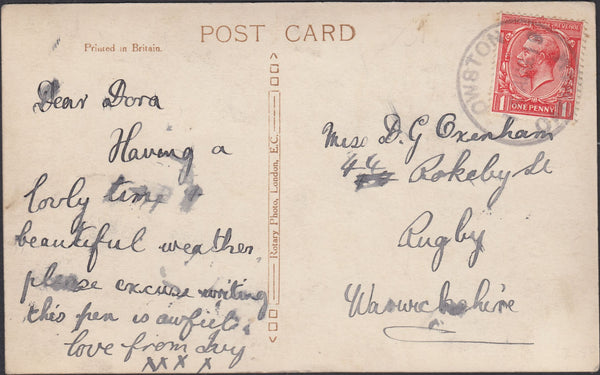 POST CARD
Printed in Britain.
Dear Dora
Having a
lovly time &
beautiful weather
please excuse writing
this pen is awful.
love from Ivy
xxx x
Rotary Photo, London, E.C.
Miss D. G Oxenham
44
Rokeby St
Rugby
Warwickshire
OWSTON
1 ONE PENNY 1